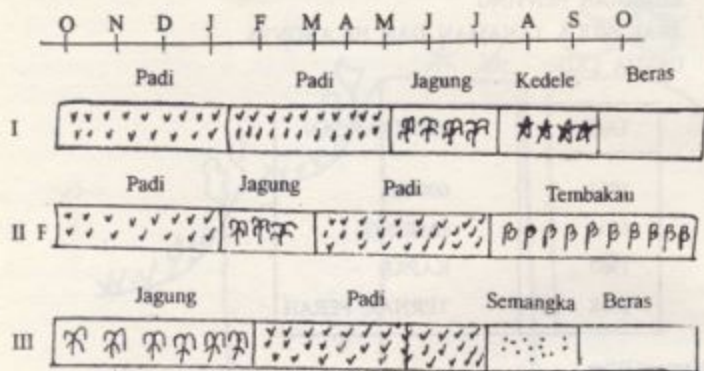 O N D J F M A M J J A S O
Padi Padi Jagung Kedele Beras
I
Padi Jagung Padi Tembakau
II F
Jagung Padi Semangka Beras
III